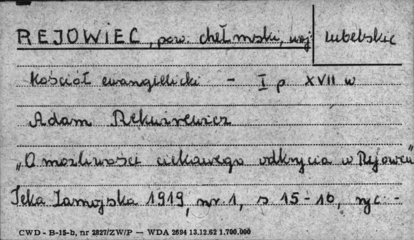 REJOWIEC, pow. chełmski, woj. lubelskie
Kościół ewangielicki - I p XVII w
Adam Rekuirewicz
„O możliwości ciekawego odkrycia w Rejowcu"
Teka Zamojska 1919, nr. 1, s 15-16, ryc. -
CWD - B-15-b, nr 2827/ZW/P — WDA 2694 13.12.62 1.700.000